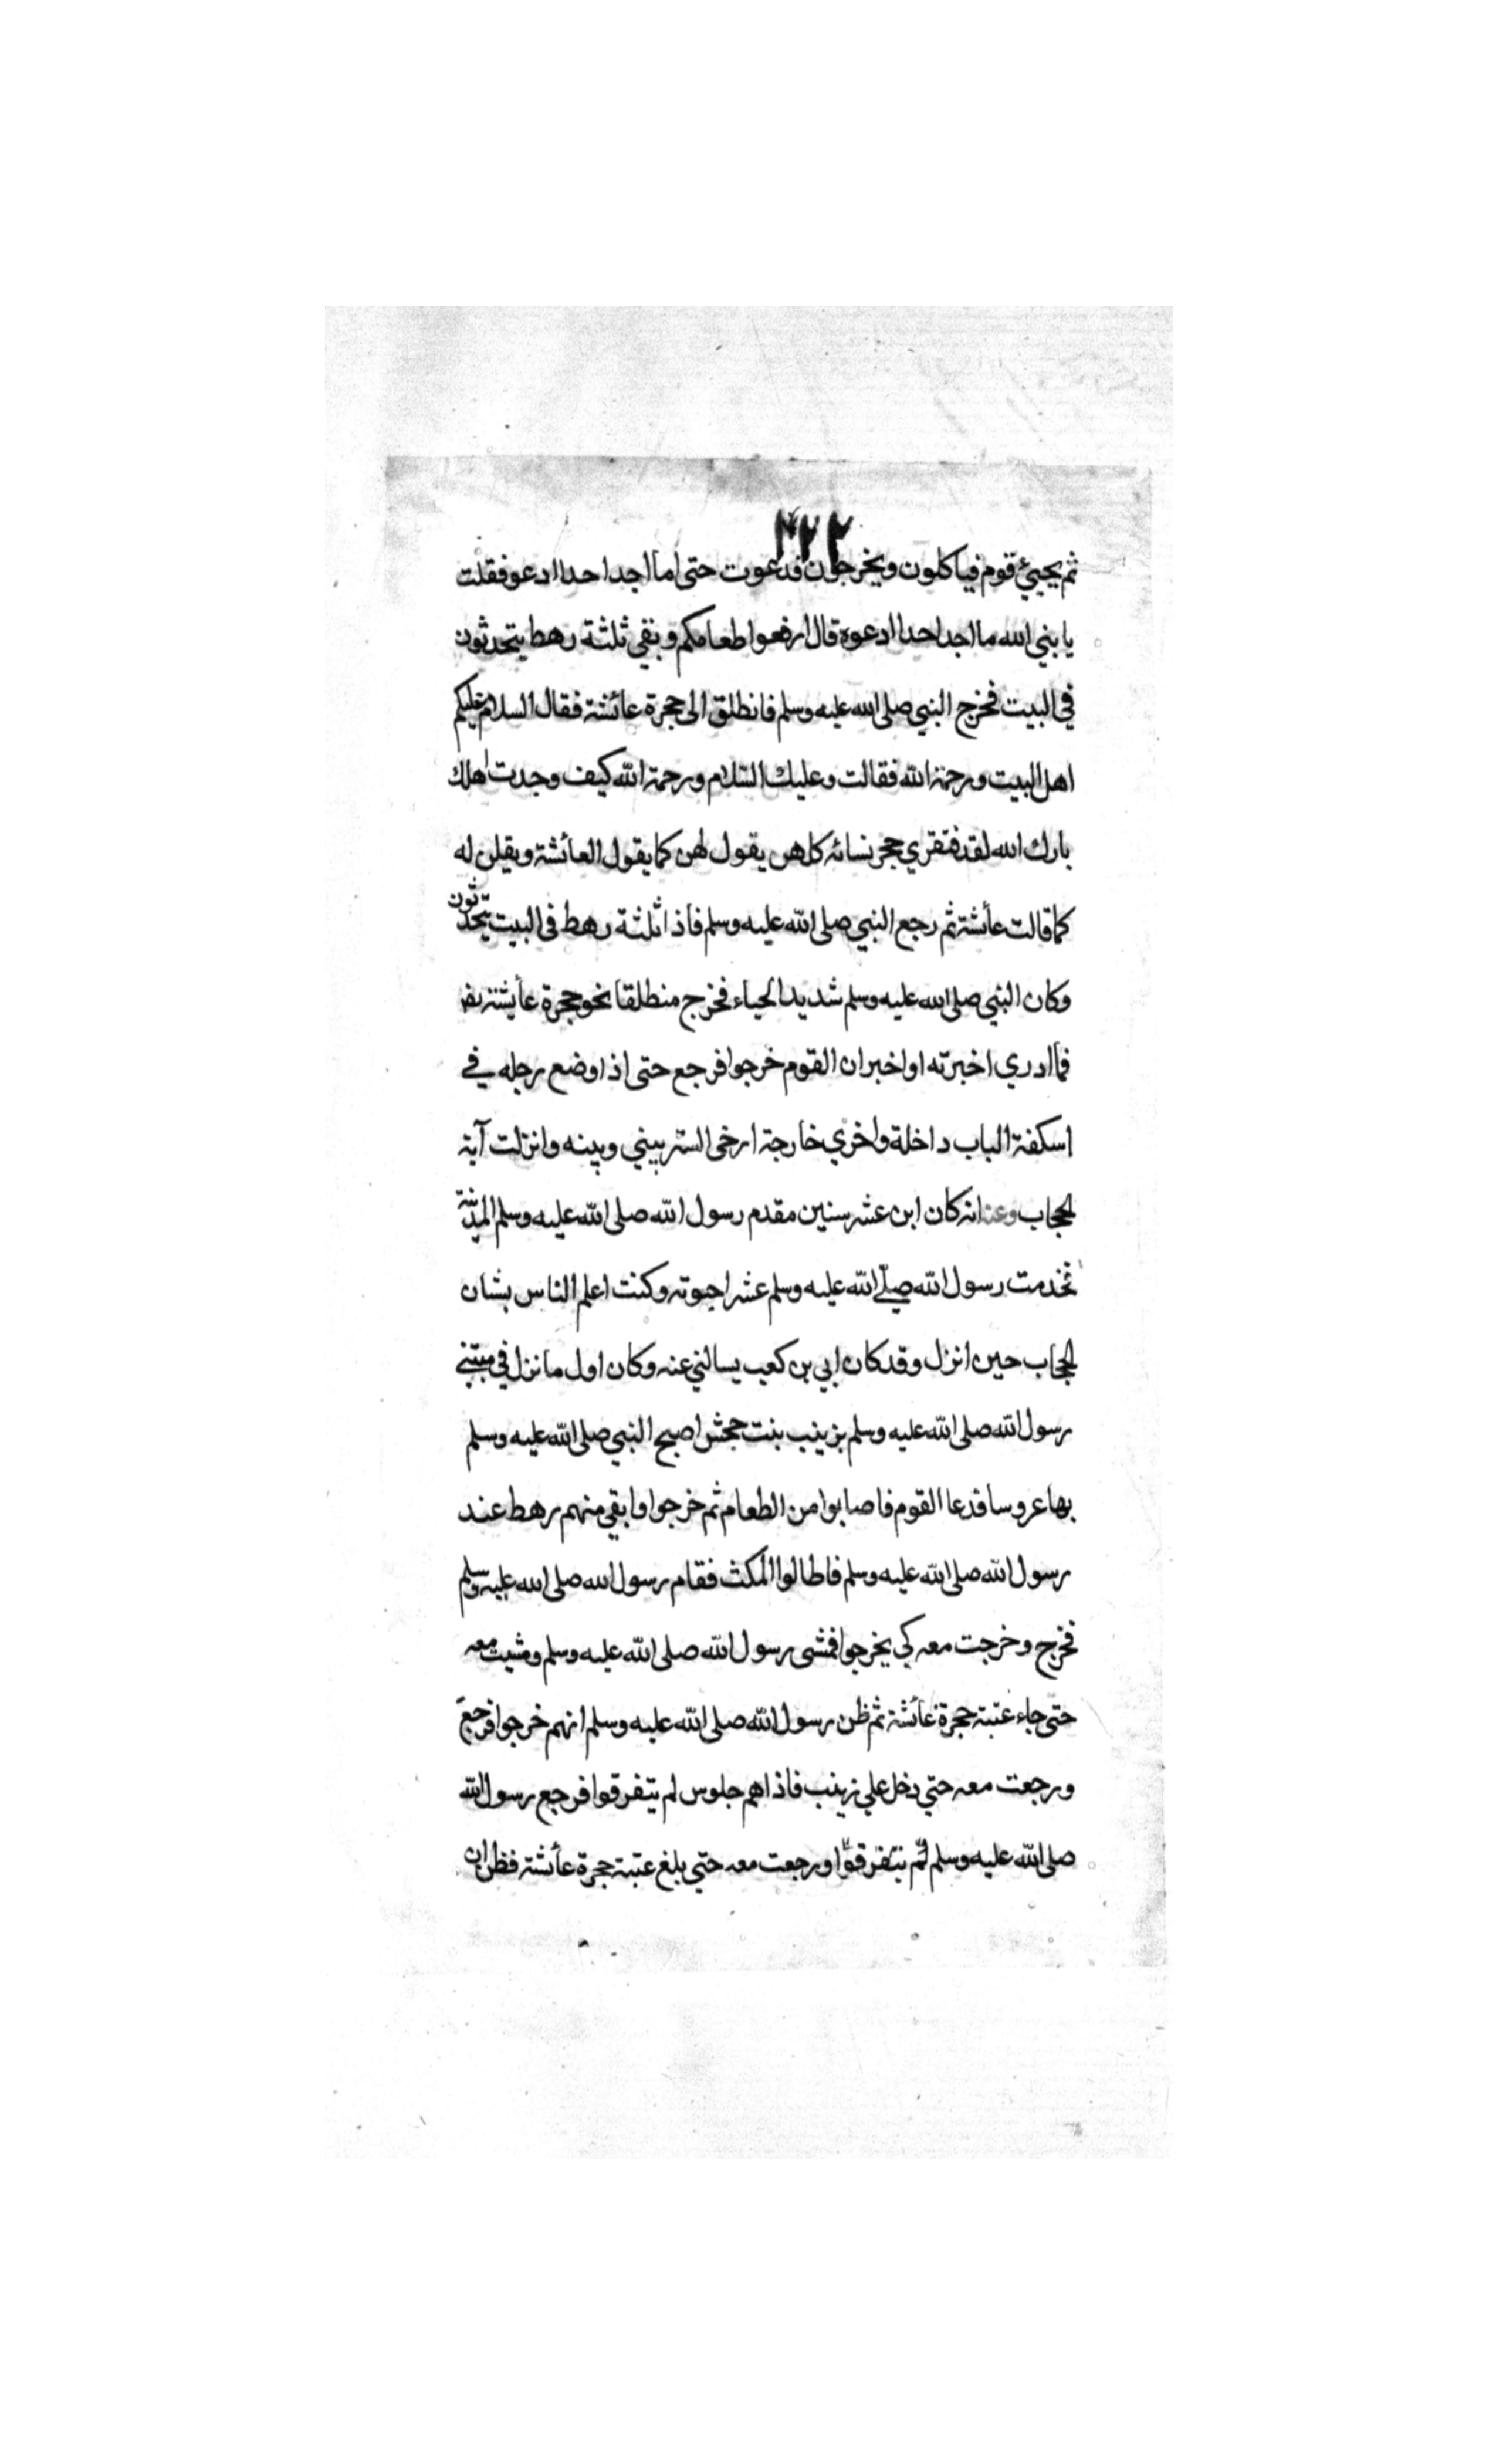 ٢٢٣
ثم يجيئ قوم فياكلون ويخرجون فدعوت حتى ما اجد احدا ادعو فقلت
يا بني الله ما اجد احدا ادعوه قال ارفعوا طعامكم وبقي ثلثة رهط يتحدثون
في البيت فخرج النبي صلى الله عليه وسلم فانطلق الى حجرة عائشة فقال السلام عليكم
اهل البيت ورحمة الله فقالت وعليك السلام ورحمة الله كيف وجدت اهلك
بارك الله لقد فتقري حجر نسائه كلهن يقول لهن كما يقول العائشة ويقلن له
كما قالت عائشة ثم رجع النبي صلى الله عليه وسلم فاذا ثلثة رهط في البيت يتحدثون
وكان النبي صلى الله عليه وسلم شديد الحياء فخرج منطلقا نحو حجرة عايشة
فما ادري اخبرته او اخبر ان القوم خرجوا فرجع حتى اذا وضع رجله في
اسكفة الباب داخلة واخري خارجة ارخى الستر بيني وبينه وانزلت آية
الحجاب وعنه انه كان ابن عشر سنين مقدم رسول الله صلى الله عليه وسلم المدينة
فخدمت رسول الله صلى الله عليه وسلم عشرا حيوته وكنت اعلم الناس بشان
الحجاب حين انزل وقد كان ابي بن كعب يسالني عنه وكان اول ما نزل في مبتني
رسول الله صلى الله عليه وسلم بزينب بنت جحش اصبح النبي صلى الله عليه وسلم
بها عروسا فدعا القوم فاصابوا من الطعام ثم خرجوا وابقي منهم رهط عند
رسول الله صلى الله عليه وسلم فاطالوا المكث فقام رسول الله صلى الله عليه وسلم
فخرج وخرجت معه كي يخرجوا فمشى رسول الله صلى الله عليه وسلم ومشيت معه
حتى جاء عتبة حجرة عائشة ثم ظن رسول الله صلى الله عليه وسلم انهم خرجوا فرجع
ورجعت معه حتي دخل علي زينب فاذا هم جلوس لم يتفرقوا فرجع رسول الله
صلى الله عليه وسلم لم يتفرقوا ورجعت معه حتي بلغ عتبة حجرة عائشة فظن ان